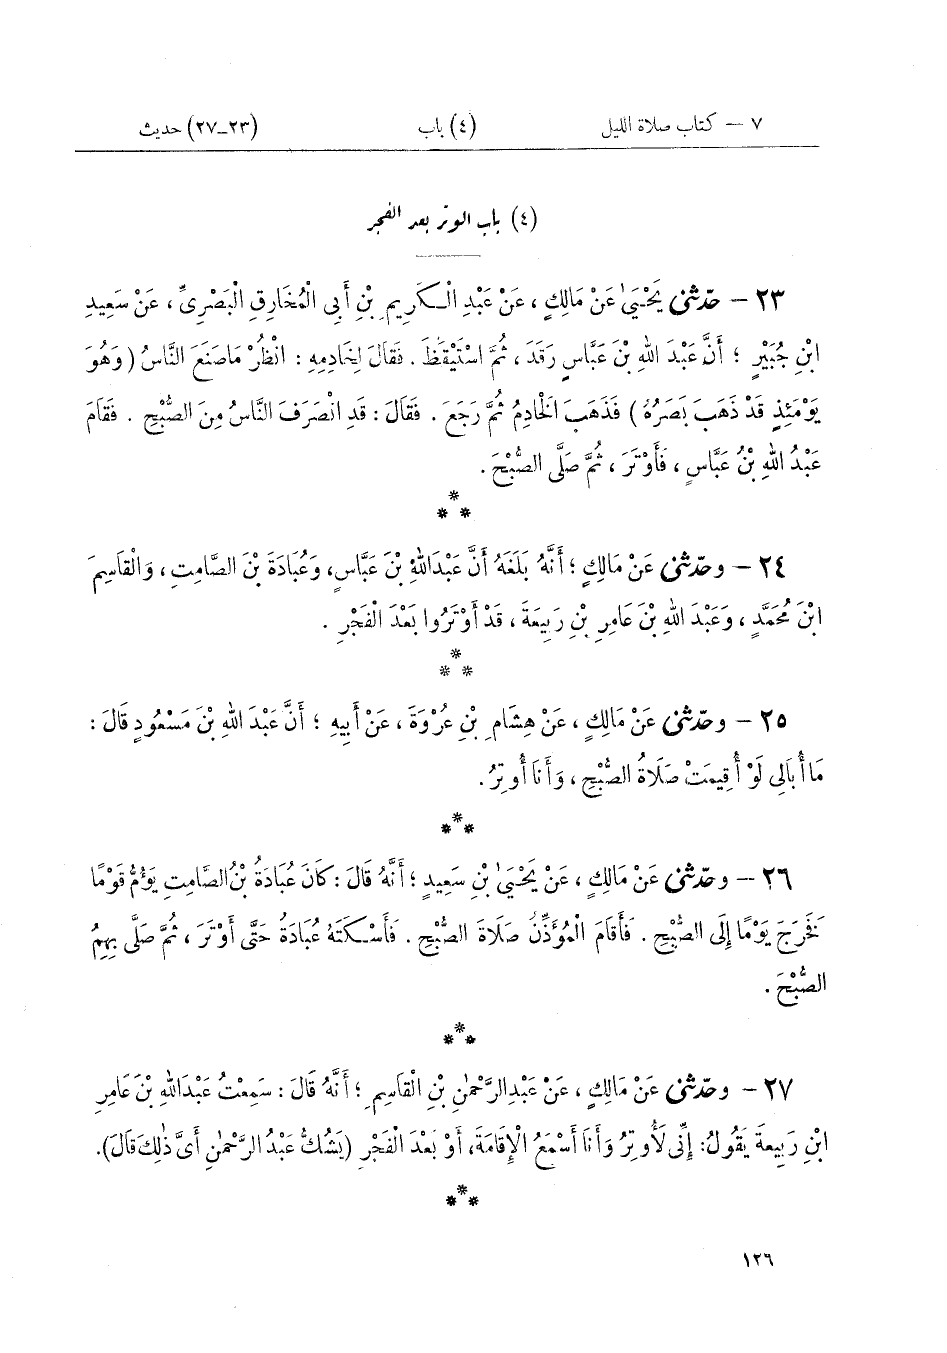 ٧ – كتاب صلاة الليل (٤) باب (٢٣-٢٧) حديث
(٤) باب الوتر بعد الفجر
٢٣ – حدّثنى يَحْيَىٰ عَنْ مَالِكٍ ، عَنْ عَبْدِ الْكَرِيمِ بْنِ أَبِى الْمُخَارِقِ الْبَصْرِىِّ ، عَنْ سَعِيدِ
ابْنِ جُبَيْرٍ ؛ أَنَّ عَبْدَ اللهِ بْنَ عَبَّاسٍ رَقَدَ ، ثُمَّ اسْتَيْقَظَ . فَقَالَ لِخَادِمِهِ : انْظُرْ مَا صَنَعَ النَّاسُ ( وَهُوَ
يَوْمَئِذٍ قَدْ ذَهَبَ بَصَرُهُ ) فَذَهَبَ الْخَادِمُ ثُمَّ رَجَعَ . فَقَالَ : قَدِ انْصَرَفَ النَّاسُ مِنَ الصُّبْحِ . فَقَامَ
عَبْدُ اللهِ بْنُ عَبَّاسٍ ، فَأَوْتَرَ ، ثُمَّ صَلَّى الصُّبْحَ .
* * *
٢٤ – وحدّثنى عَنْ مَالِكٍ ؛ أَنَّهُ بَلَغَهُ أَنَّ عَبْدَ اللهِ بْنَ عَبَّاسٍ، وَعُبَادَةَ بْنَ الصَّامِتِ ، وَالْقَاسِمَ
ابْنَ مُحَمَّدٍ ، وَعَبْدَ اللهِ بْنَ عَامِرِ بْنِ رَبِيعَةَ ، قَدْ أَوْتَرُوا بَعْدَ الْفَجْرِ .
* * *
٢٥ – وحدّثنى عَنْ مَالِكٍ ، عَنْ هِشَامِ بْنِ عُرْوَةَ ، عَنْ أَبِيهِ ؛ أَنَّ عَبْدَ اللهِ بْنَ مَسْعُودٍ قَالَ :
مَا أُبَالِى لَوْ أُقِيمَتْ صَلَاةُ الصُّبْحِ ، وَأَنَا أُوتِرُ .
* * *
٢٦ – وحدّثنى عَنْ مَالِكٍ ، عَنْ يَحْيَىٰ بْنِ سَعِيدٍ ؛ أَنَّهُ قَالَ : كَانَ عُبَادَةُ بْنُ الصَّامِتِ يَؤُمُّ قَوْمًا
فَخَرَجَ يَوْمًا إِلَى الصُّبْحِ . فَأَقَامَ الْمُؤَذِّنُ صَلَاةَ الصُّبْحِ . فَأَسْكَتَهُ عُبَادَةُ حَتَّى أَوْتَرَ ، ثُمَّ صَلَّى بِهِمُ
الصُّبْحَ .
* * *
٢٧ – وحدّثنى عَنْ مَالِكٍ ، عَنْ عَبْدِ الرَّحْمٰنِ بْنِ الْقَاسِمِ ؛ أَنَّهُ قَالَ : سَمِعْتُ عَبْدَ اللهِ بْنَ عَامِرِ
ابْنِ رَبِيعَةَ يَقُولُ: إِنِّى لَأُوتِرُ وَأَنَا أَسْمَعُ الْإِقَامَةَ، أَوْ بَعْدَ الْفَجْرِ (يَشُكُّ عَبْدُ الرَّحْمٰنِ أَىَّ ذٰلِكَ قَالَ).
* * *
١٢٦